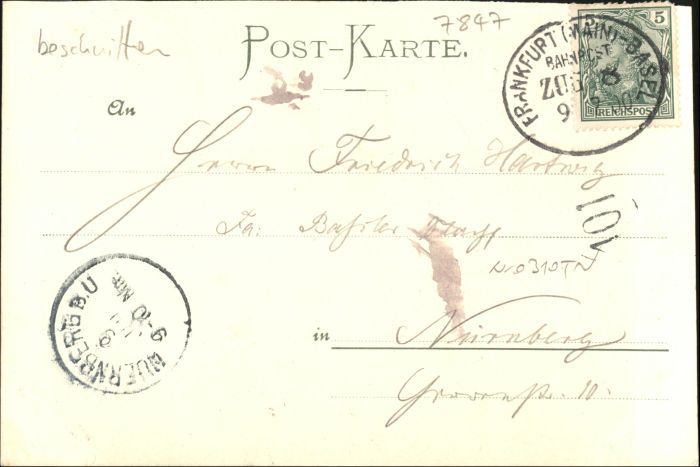 beschnitten
7847
POST-KARTE.
An
FRANKFURT (MAIN)-BASEL
BAHNPOST
ZUG
9
5
REICHSPOST
Herrn Friedrich Hartwig
Fa:
101
N0310TN
NUERNBERG B.U
9-10 Nm.
in Nürnberg
10.